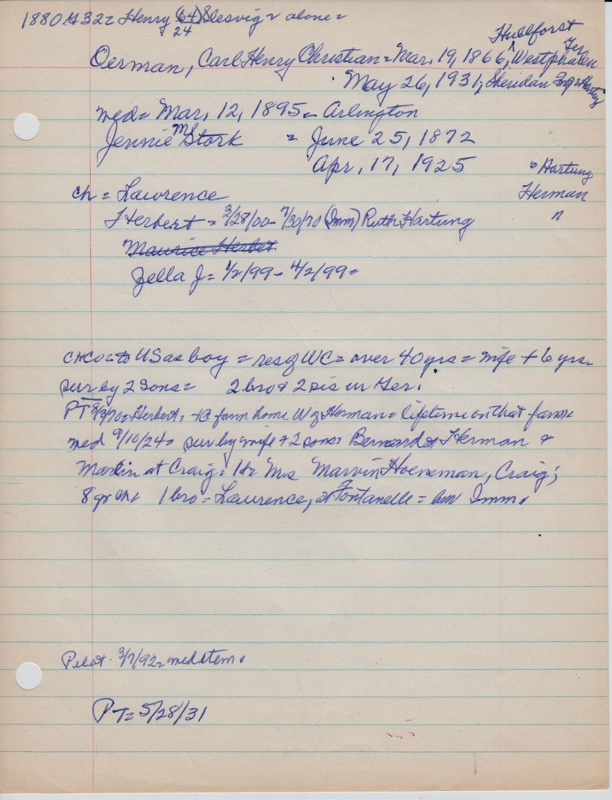 1880 #32 = Henry (64) Slesvig = alone =
24
Hullforst
Oerman, Carl Henry Christian = Mar. 19, 1866, Westphalen Ger
May 26, 1931, Sheridan
med = Mar. 12, 1895 = Arlington
Jennie M Stork = June 25, 1872
Apr. 17, 1925
= Hartung
ch = Lawrence Herman
Herbert = 3/28/00 - 7/30/70 (Imm) Ruth Hartung "
Maurice Herbert
Zella J = 1/2/99 - 4/2/99 =
to US as boy = res of WC = over 40 yrs = wife + 6 yrs
sur by 2 sons = 2 bro & 2 sis in Ger.
PT = Herbert = farm home W of Herman = lifetime on that farm =
med 9/10/24 = sur by wife & 2 sons Bernard at Herman &
Marlin at Craig; 1 dr Mrs Marvin Hoeneman, Craig;
8 gr ch 1 bro = Lawrence, at Fontanelle = bur Imm.
Pilot 3/7/92 = med item.
PT = 5/28/31